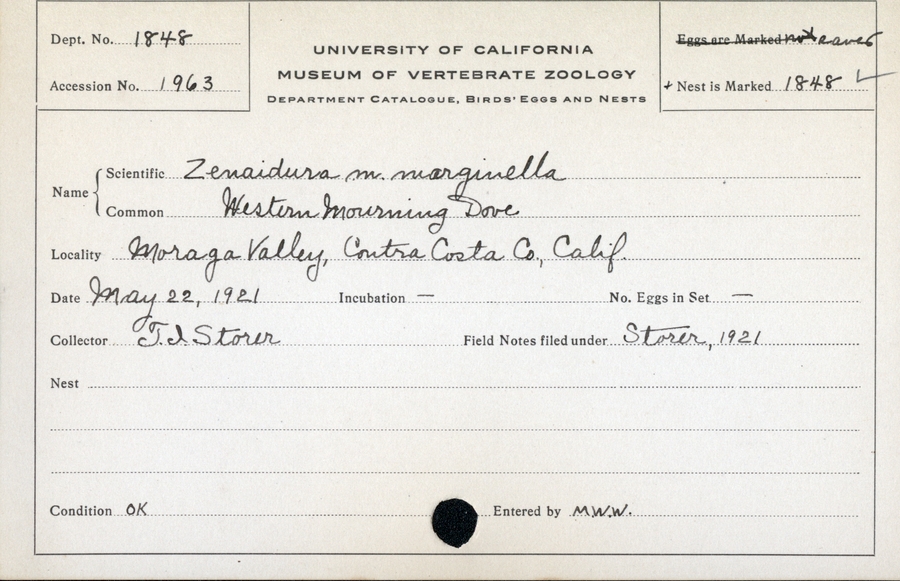 Dept. No. 1848
Accession No. 1963
UNIVERSITY OF CALIFORNIA
MUSEUM OF VERTEBRATE ZOOLOGY
DEPARTMENT CATALOGUE, BIRDS' EGGS AND NESTS
Eggs are Marked not saved
+ Nest is Marked 1848 ✓
Name
Scientific Zenaidura m. marginella
Common Western Mourning Dove
Locality Moraga Valley, Contra Costa Co., Calif.
Date May 22, 1921 Incubation — No. Eggs in Set —
Collector T. I. Storer Field Notes filed under Storer, 1921
Nest
Condition OK Entered by M.W.W.